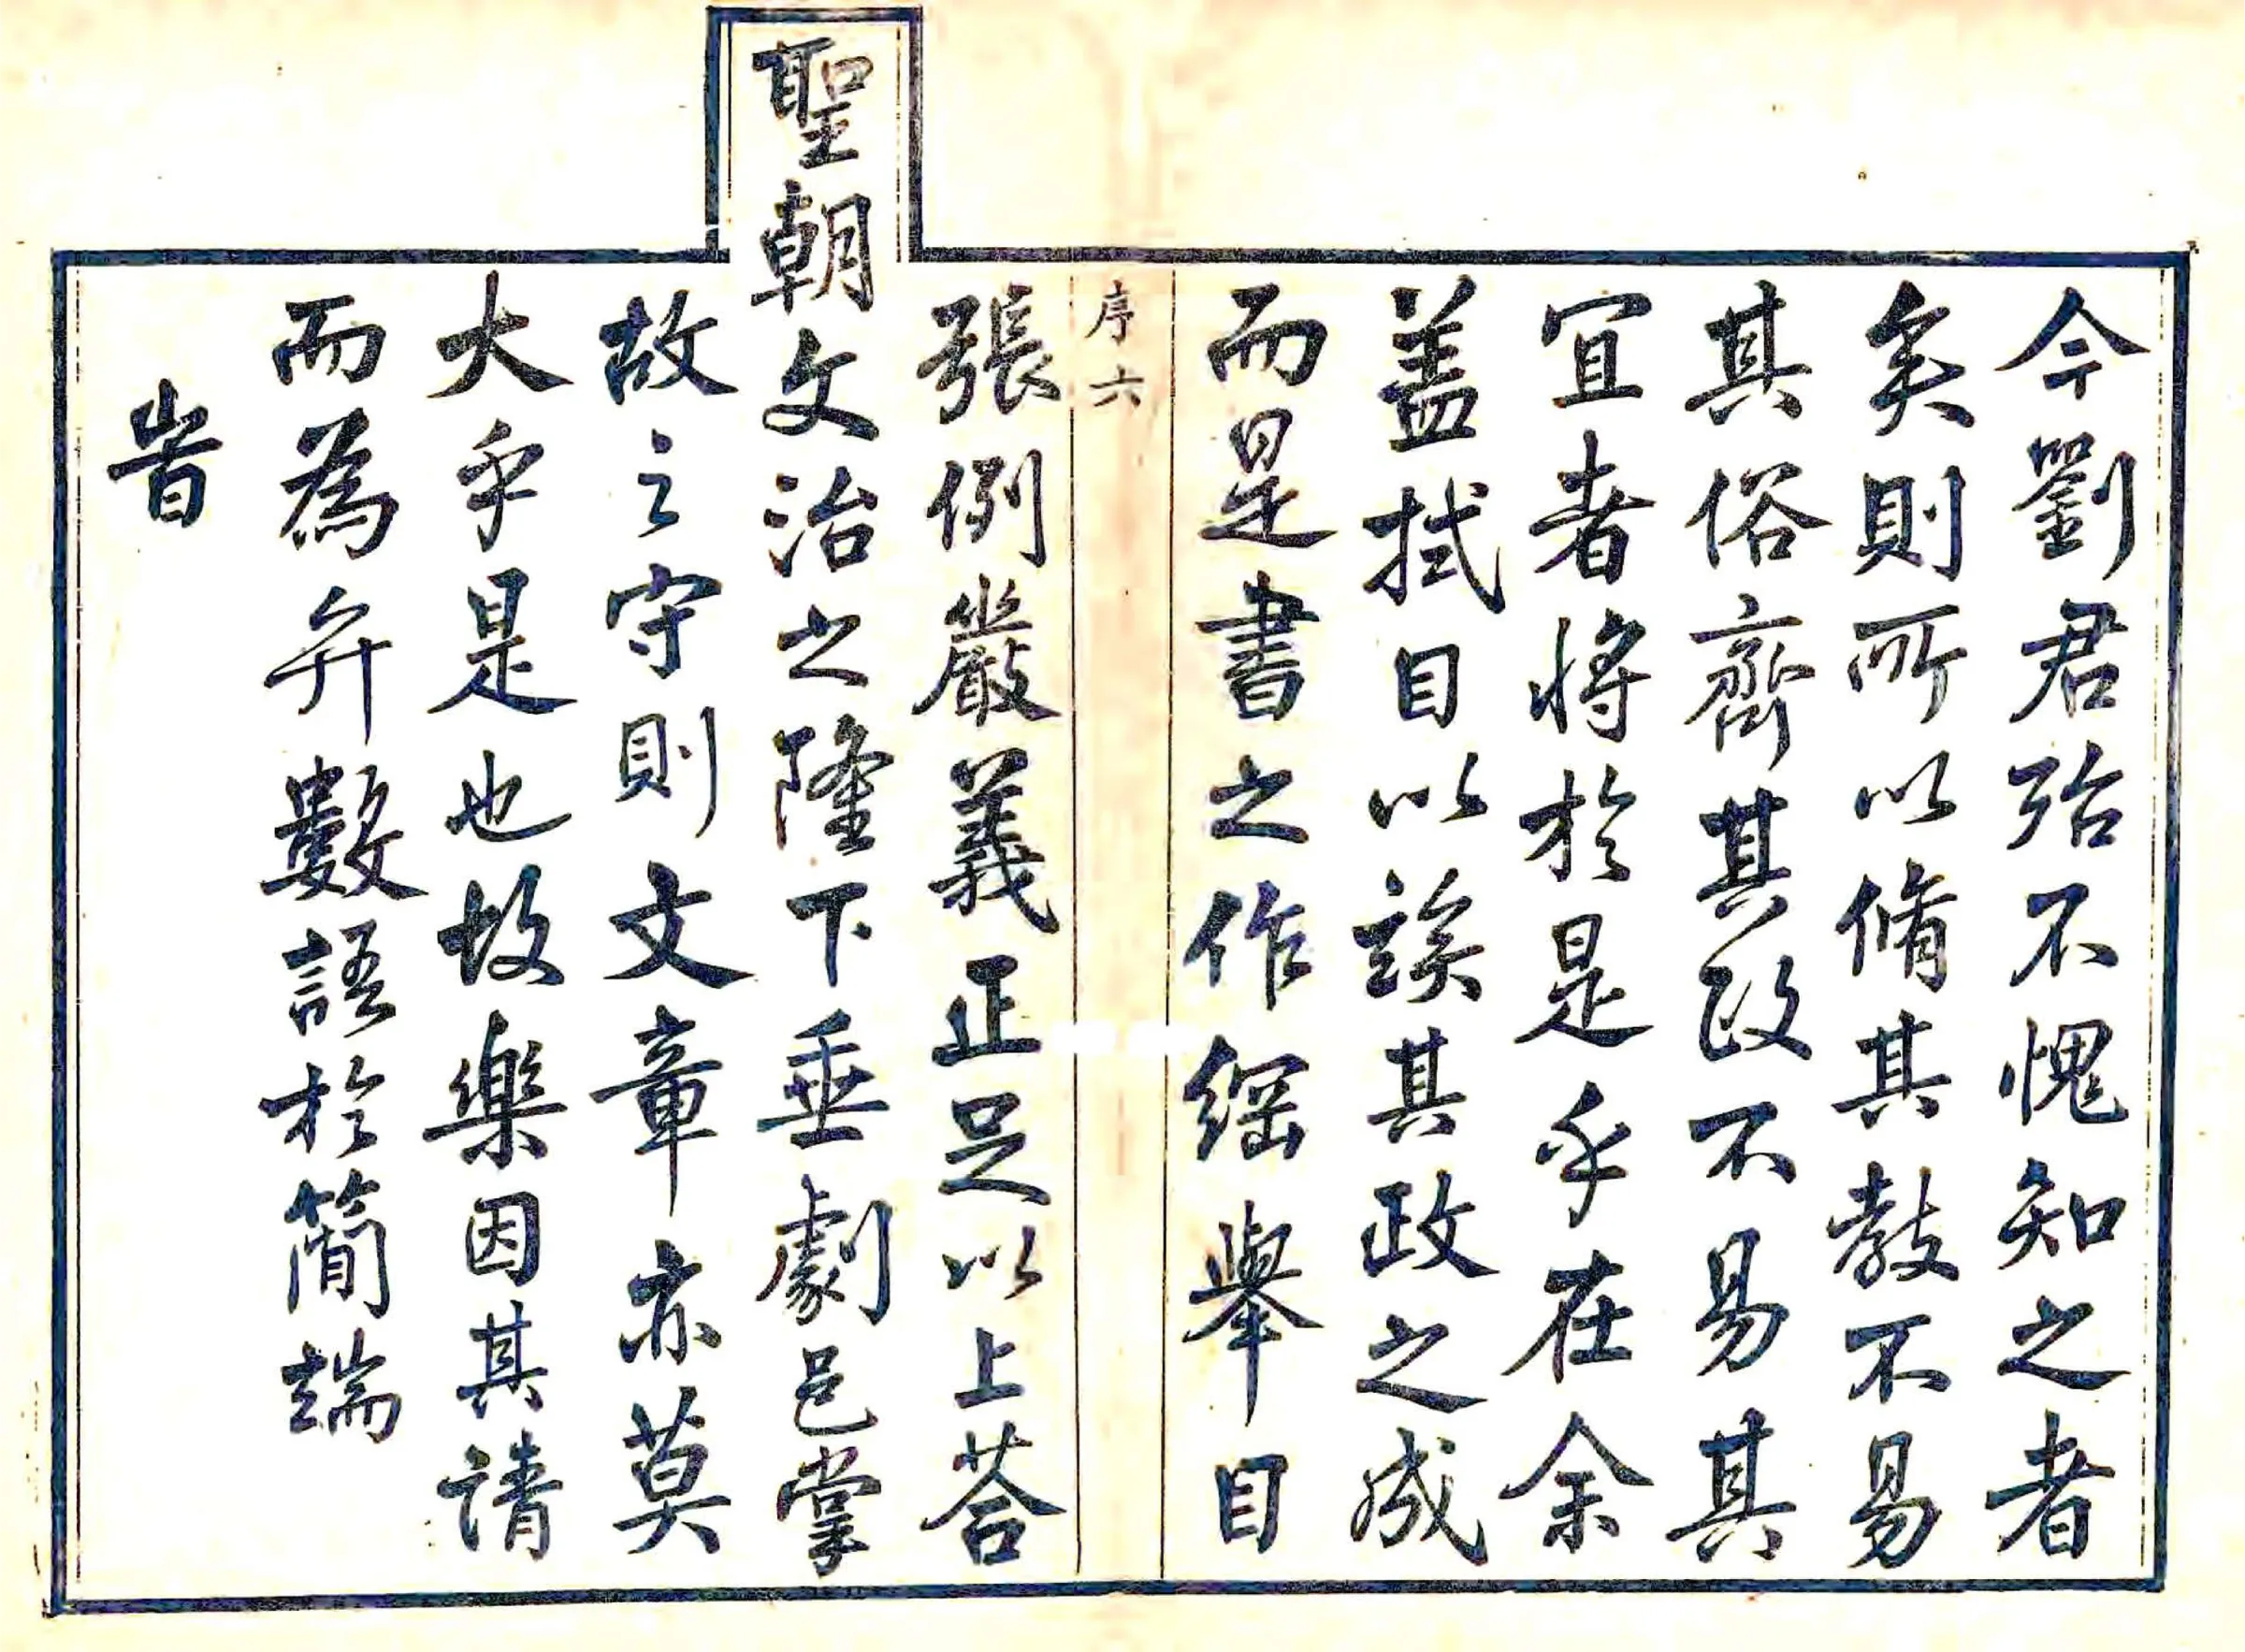 今劉君殆不愧知之者
矣則所以脩其教不易
其俗齊其政不易其
宜者將於是乎在余
盖拭目以俟其政之成
而是書之作綱舉目
序六
張例嚴義正足以上荅
聖朝文治之隆下垂劇邑掌
故之守則文章亦莫
大乎是也故樂因其請
而為弁數語於簡端
旹